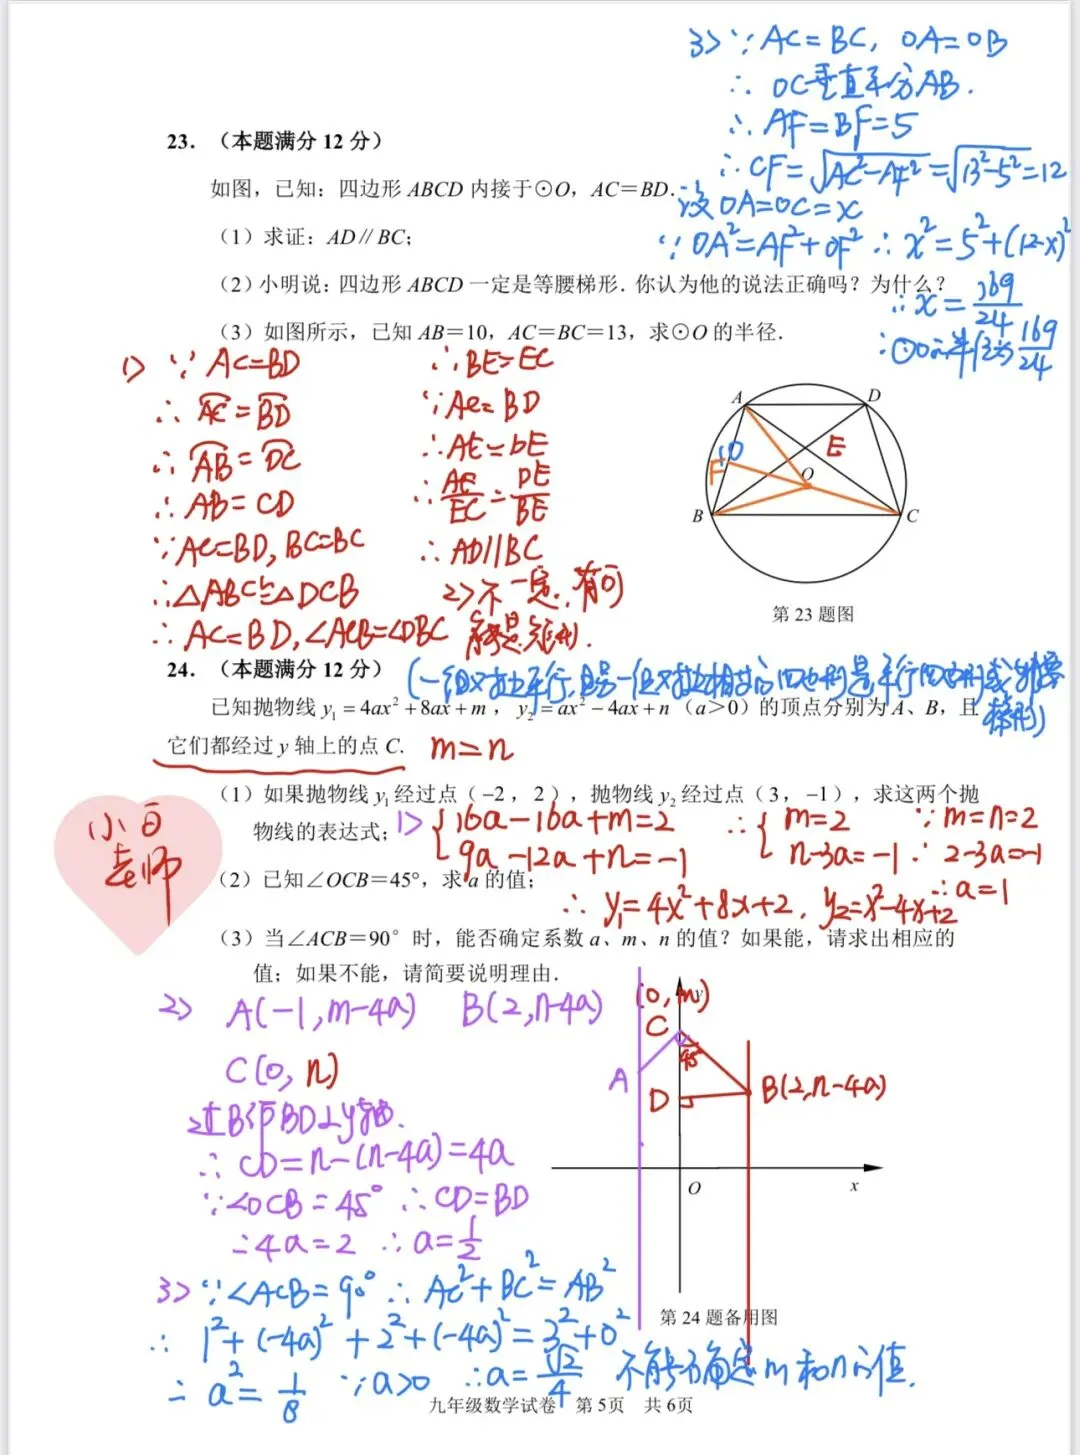 3> ∵ AC=BC, OA=OB
∴ OC垂直平分AB.
∴ AF=BF=5
∴ CF=√AC²-AF²=√13²-5²=12
设OA=OC=x
∵ OA²=AF²+OF² ∴ x²=5²+(12-x)²
∴ x=169/24
∴ ⊙O的半径为169/24
23. （本题满分 12 分）
如图，已知：四边形 ABCD 内接于⊙O，AC=BD.
（1）求证：AD∥BC；
（2）小明说：四边形 ABCD 一定是等腰梯形. 你认为他的说法正确吗？为什么？
（3）如图所示，已知 AB=10，AC=BC=13，求⊙O 的半径.
1> ∵ AC=BD
∴ AC=BD
∴ AB=DC
∴ AB=CD
∵ AC=BD, BC=BC
∴ △ABC≌△DCB
∴ AC=BD, ∠ACB=∠DBC
∴ BE=EC
∵ AC=BD
∴ AE=DE
∴ AE/EC=DE/BE
∴ AD//BC
2> 不一定, 有可
能是矩形.
A
D
10
F
E
O
B
C
第 23 题图
24. （本题满分 12 分）
(一组对边平行, 且另一组对边相等的四边形是平行四边形或等腰
梯形)
已知抛物线 y₁=4ax²+8ax+m，y₂=ax²-4ax+n（a>0）的顶点分别为 A、B，且
它们都经过 y 轴上的点 C. m=n
（1）如果抛物线 y₁ 经过点（-2，2），抛物线 y₂ 经过点（3，-1），求这两个抛
物线的表达式；
1> { 16a-16a+m=2 ∴ { m=2 ∵ m=n=2
9a-12a+n=-1 n-3a=-1 ∴ 2-3a=-1
∴ a=1
∴ y₁=4x²+8x+2, y₂=x²-4x+2
小白
老师
（2）已知∠OCB=45°，求 a 的值；
（3）当∠ACB=90°时，能否确定系数 a、m、n 的值？如果能，请求出相应的
值；如果不能，请简要说明理由.
2> A(-1, m-4a) B(2, n-4a)
C(0, n)
过B作BD⊥y轴.
∴ CD=n-(n-4a)=4a
∵ ∠OCB=45° ∴ CD=BD
∴ 4a=2 ∴ a=1/2
(0, m)
y
C
45°
A
D
B(2, n-4a)
O
x
第 24 题备用图
3> ∵ ∠ACB=90° ∴ AC²+BC²=AB²
∴ 1²+(-4a)²+2²+(-4a)²=3²+0²
∴ a²=1/8 ∵ a>0 ∴ a=√2/4 不能确定m和n的值.
九年级数学试卷 第 5页 共 6页